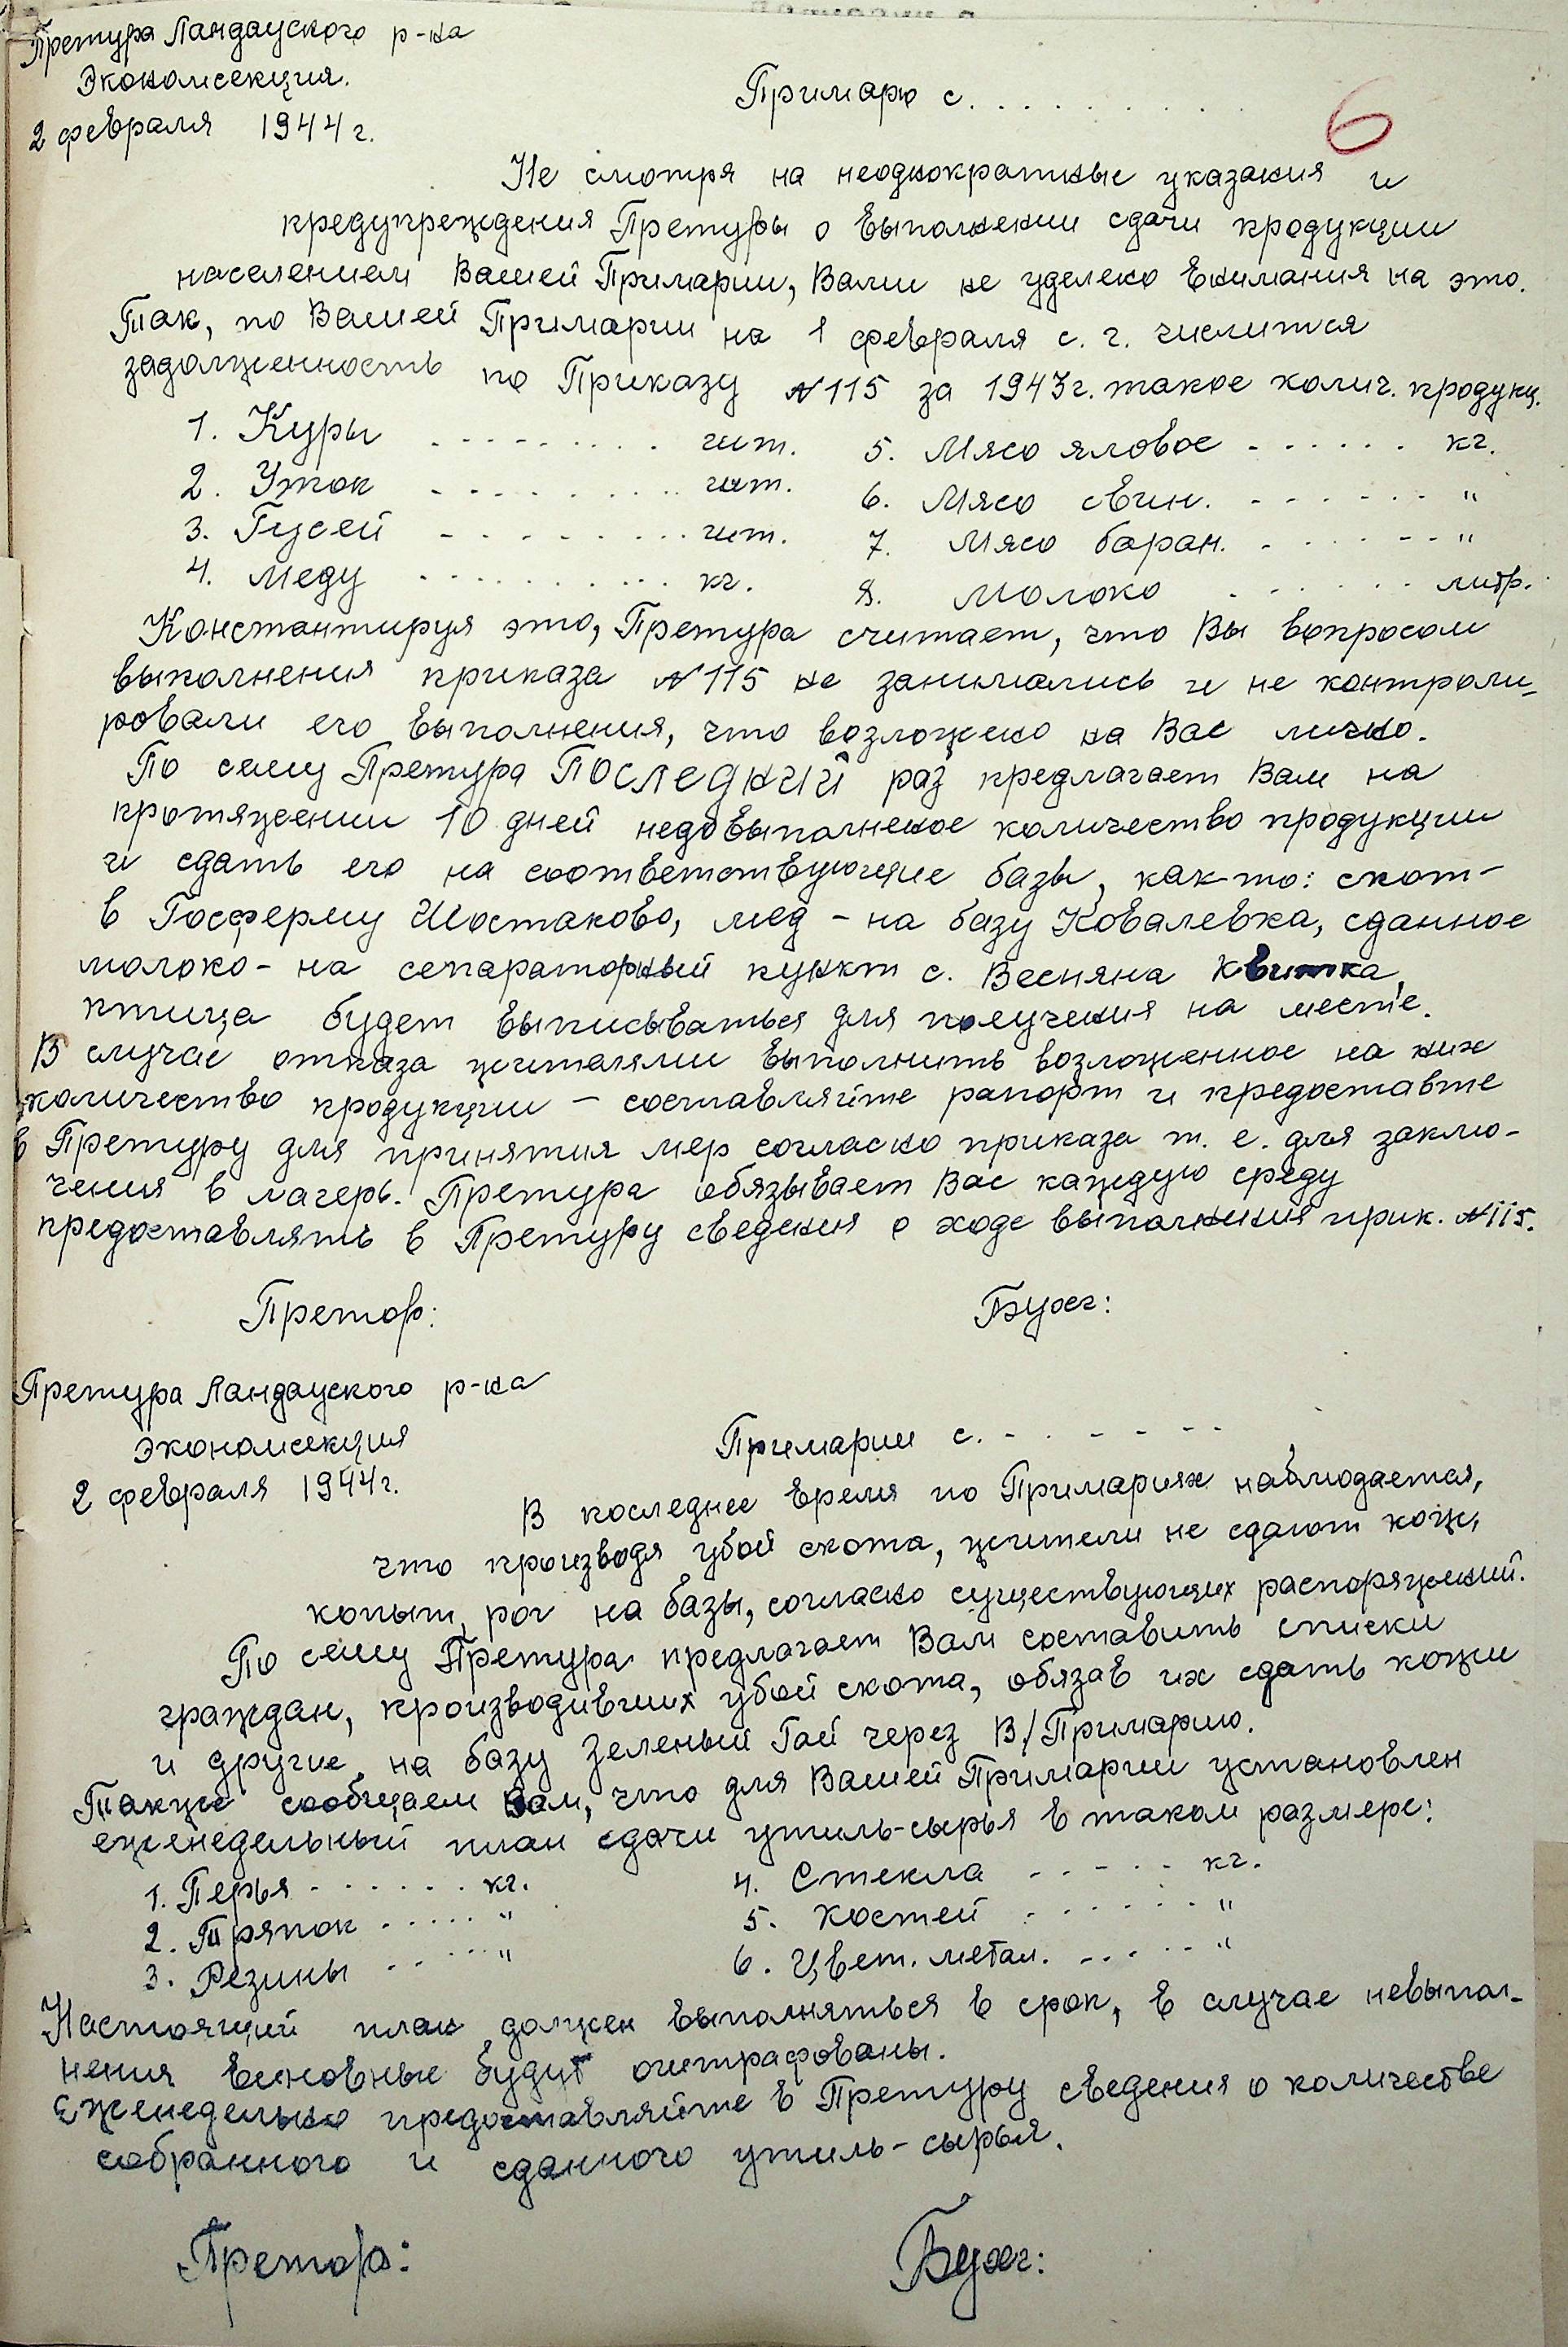 Претура Ландауского р-на
Экономсекция.
2 февраля 1944 г.
Примарю с. . . . . . . . . .
6
Не смотря на неоднократные указания и
предупреждения Претуры о выполнении сдачи продукции
населением Вашей Примарии, Вами не уделено внимания на это.
Так, по Вашей Примарии на 1 февраля с. г. числится
задолженность по Приказу №115 за 1943г. такое колич. продукц.
1. Куры . . . . . . . . . шт. 5. Мясо яловое . . . . . . кг.
2. Уток . . . . . . . . . шт. 6. Мясо свин. . . . . . . "
3. Гусей . . . . . . . . . шт. 7. Мясо баран. . . . . . . "
4. Меду . . . . . . . . . . кг. 8. Молоко . . . . . . литр.
Константируя это, Претура считает, что Вы вопросом
выполнения приказа №115 не занимались и не контроли-
ровали его выполнения, что возложено на Вас лично.
По сему Претура Последний раз предлагает Вам на
протяжении 10 дней недовыполненое количество продукции
и сдать его на соответствующие базы, как-то: скот-
в Госферму Шостаково, мед - на базу Ковалевка, сданное
молоко - на сепараторный пункт с. Весняна Квитка,
птица будет выписываться для получения на месте.
В случае отказа жителями выполнить возложенное на них
количество продукции - составляйте рапорт и предоставте
в Претуру для принятия мер согласно приказа т. е. для заклю-
чения в лагерь. Претура обязывает Вас каждую среду
предоставлять в Претуру сведения о ходе выполнения прик. №115.
Претор: Бухг:
Претура Ландауского р-на
Экономсекция
2 февраля 1944г.
Примарии с. - - - - - -
В последнее время по Примариях наблюдается,
что производя убой скота, жители не сдают кож,
копыт, рог на базы, согласно существующих распоряжений.
По сему Претура предлагает Вам составить списки
граждан, производивших убой скота, обязав их сдать кожи
и другие на базу Зеленый Гай через В/Примарию.
Также сообщаем Вам, что для Вашей Примарии установлен
еженедельный план сдачи утиль-сырья в таком размере:
1. Перья . . . . . . кг. 4. Стекла . . . . . кг.
2. Тряпок . . . . . " 5. Костей . . . . . . "
3. Резины . . . . . " 6. Цвет. метал. . . . . . "
Настоящий план должен выполняться в срок, в случае невыпол-
нения виновные будут оштрафованы.
Еженедельно предоставляйте в Претуру сведения о количестве
собранного и сданного утиль-сырья.
Претор: Бухг: